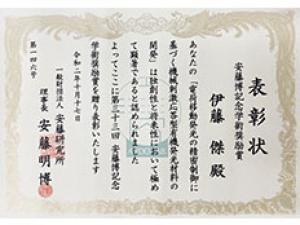 表彰状
安藤博記念学術奨励賞
伊藤 傑 殿
あなたの「電荷移動発光の精密制御に
基づく機械刺激応答型有機発光材料の
開発」は独創性と将来性において極め
て顕著であると認められました
よってここに第三十三回 安藤博記念
学術奨励賞を贈り表彰いたします
令和二年十月十七日
一般財団法人 安藤研究所
理事長 安藤明博
第一四六号